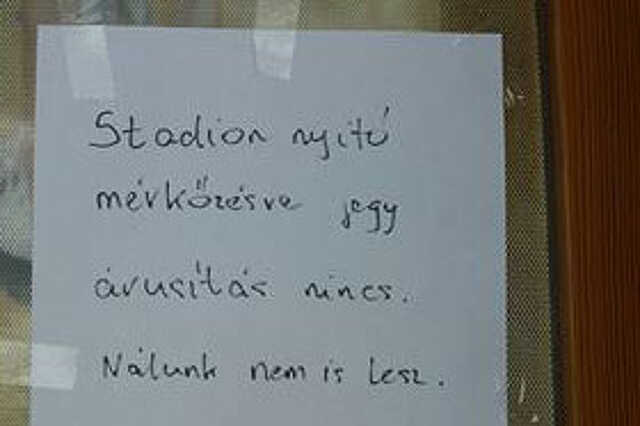 Stadion nyitó
mérkőzésre jegy
árusítás nincs.
Nálunk nem is lesz.